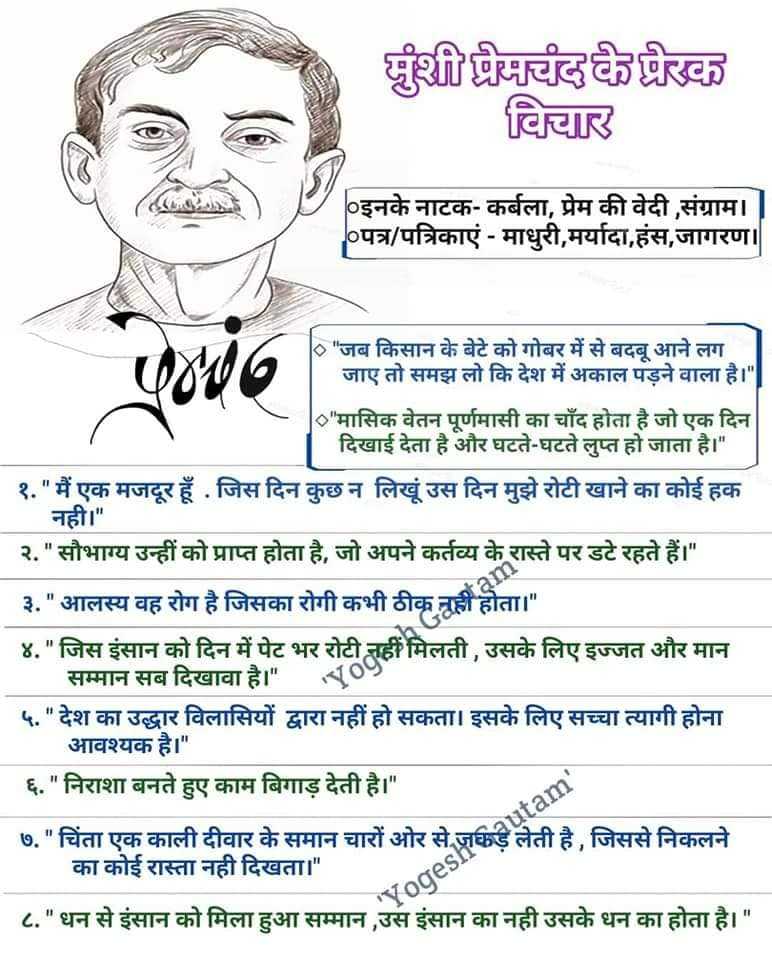 मुंशी प्रेमचंद के प्रेरक
विचार
○इनके नाटक- कर्बला, प्रेम की वेदी ,संग्राम।
○पत्र/पत्रिकाएं - माधुरी,मर्यादा,हंस,जागरण।
प्रेमचंद
◇ "जब किसान के बेटे को गोबर में से बदबू आने लग
जाए तो समझ लो कि देश में अकाल पड़ने वाला है।"
◇"मासिक वेतन पूर्णमासी का चाँद होता है जो एक दिन
दिखाई देता है और घटते-घटते लुप्त हो जाता है।"
१. " मैं एक मजदूर हूँ . जिस दिन कुछ न लिखूं उस दिन मुझे रोटी खाने का कोई हक
नही।"
२. " सौभाग्य उन्हीं को प्राप्त होता है, जो अपने कर्तव्य के रास्ते पर डटे रहते हैं।"
३. " आलस्य वह रोग है जिसका रोगी कभी ठीक नही होता।"
४. " जिस इंसान को दिन में पेट भर रोटी नहीं मिलती , उसके लिए इज्जत और मान
सम्मान सब दिखावा है।"
'Yogesh Gautam
५. " देश का उद्धार विलासियों द्वारा नहीं हो सकता। इसके लिए सच्चा त्यागी होना
आवश्यक है।"
६. " निराशा बनते हुए काम बिगाड़ देती है।"
७. " चिंता एक काली दीवार के समान चारों ओर से जकड़ लेती है , जिससे निकलने
का कोई रास्ता नही दिखता।"
'Yogesh Gautam'
८. " धन से इंसान को मिला हुआ सम्मान ,उस इंसान का नही उसके धन का होता है। "